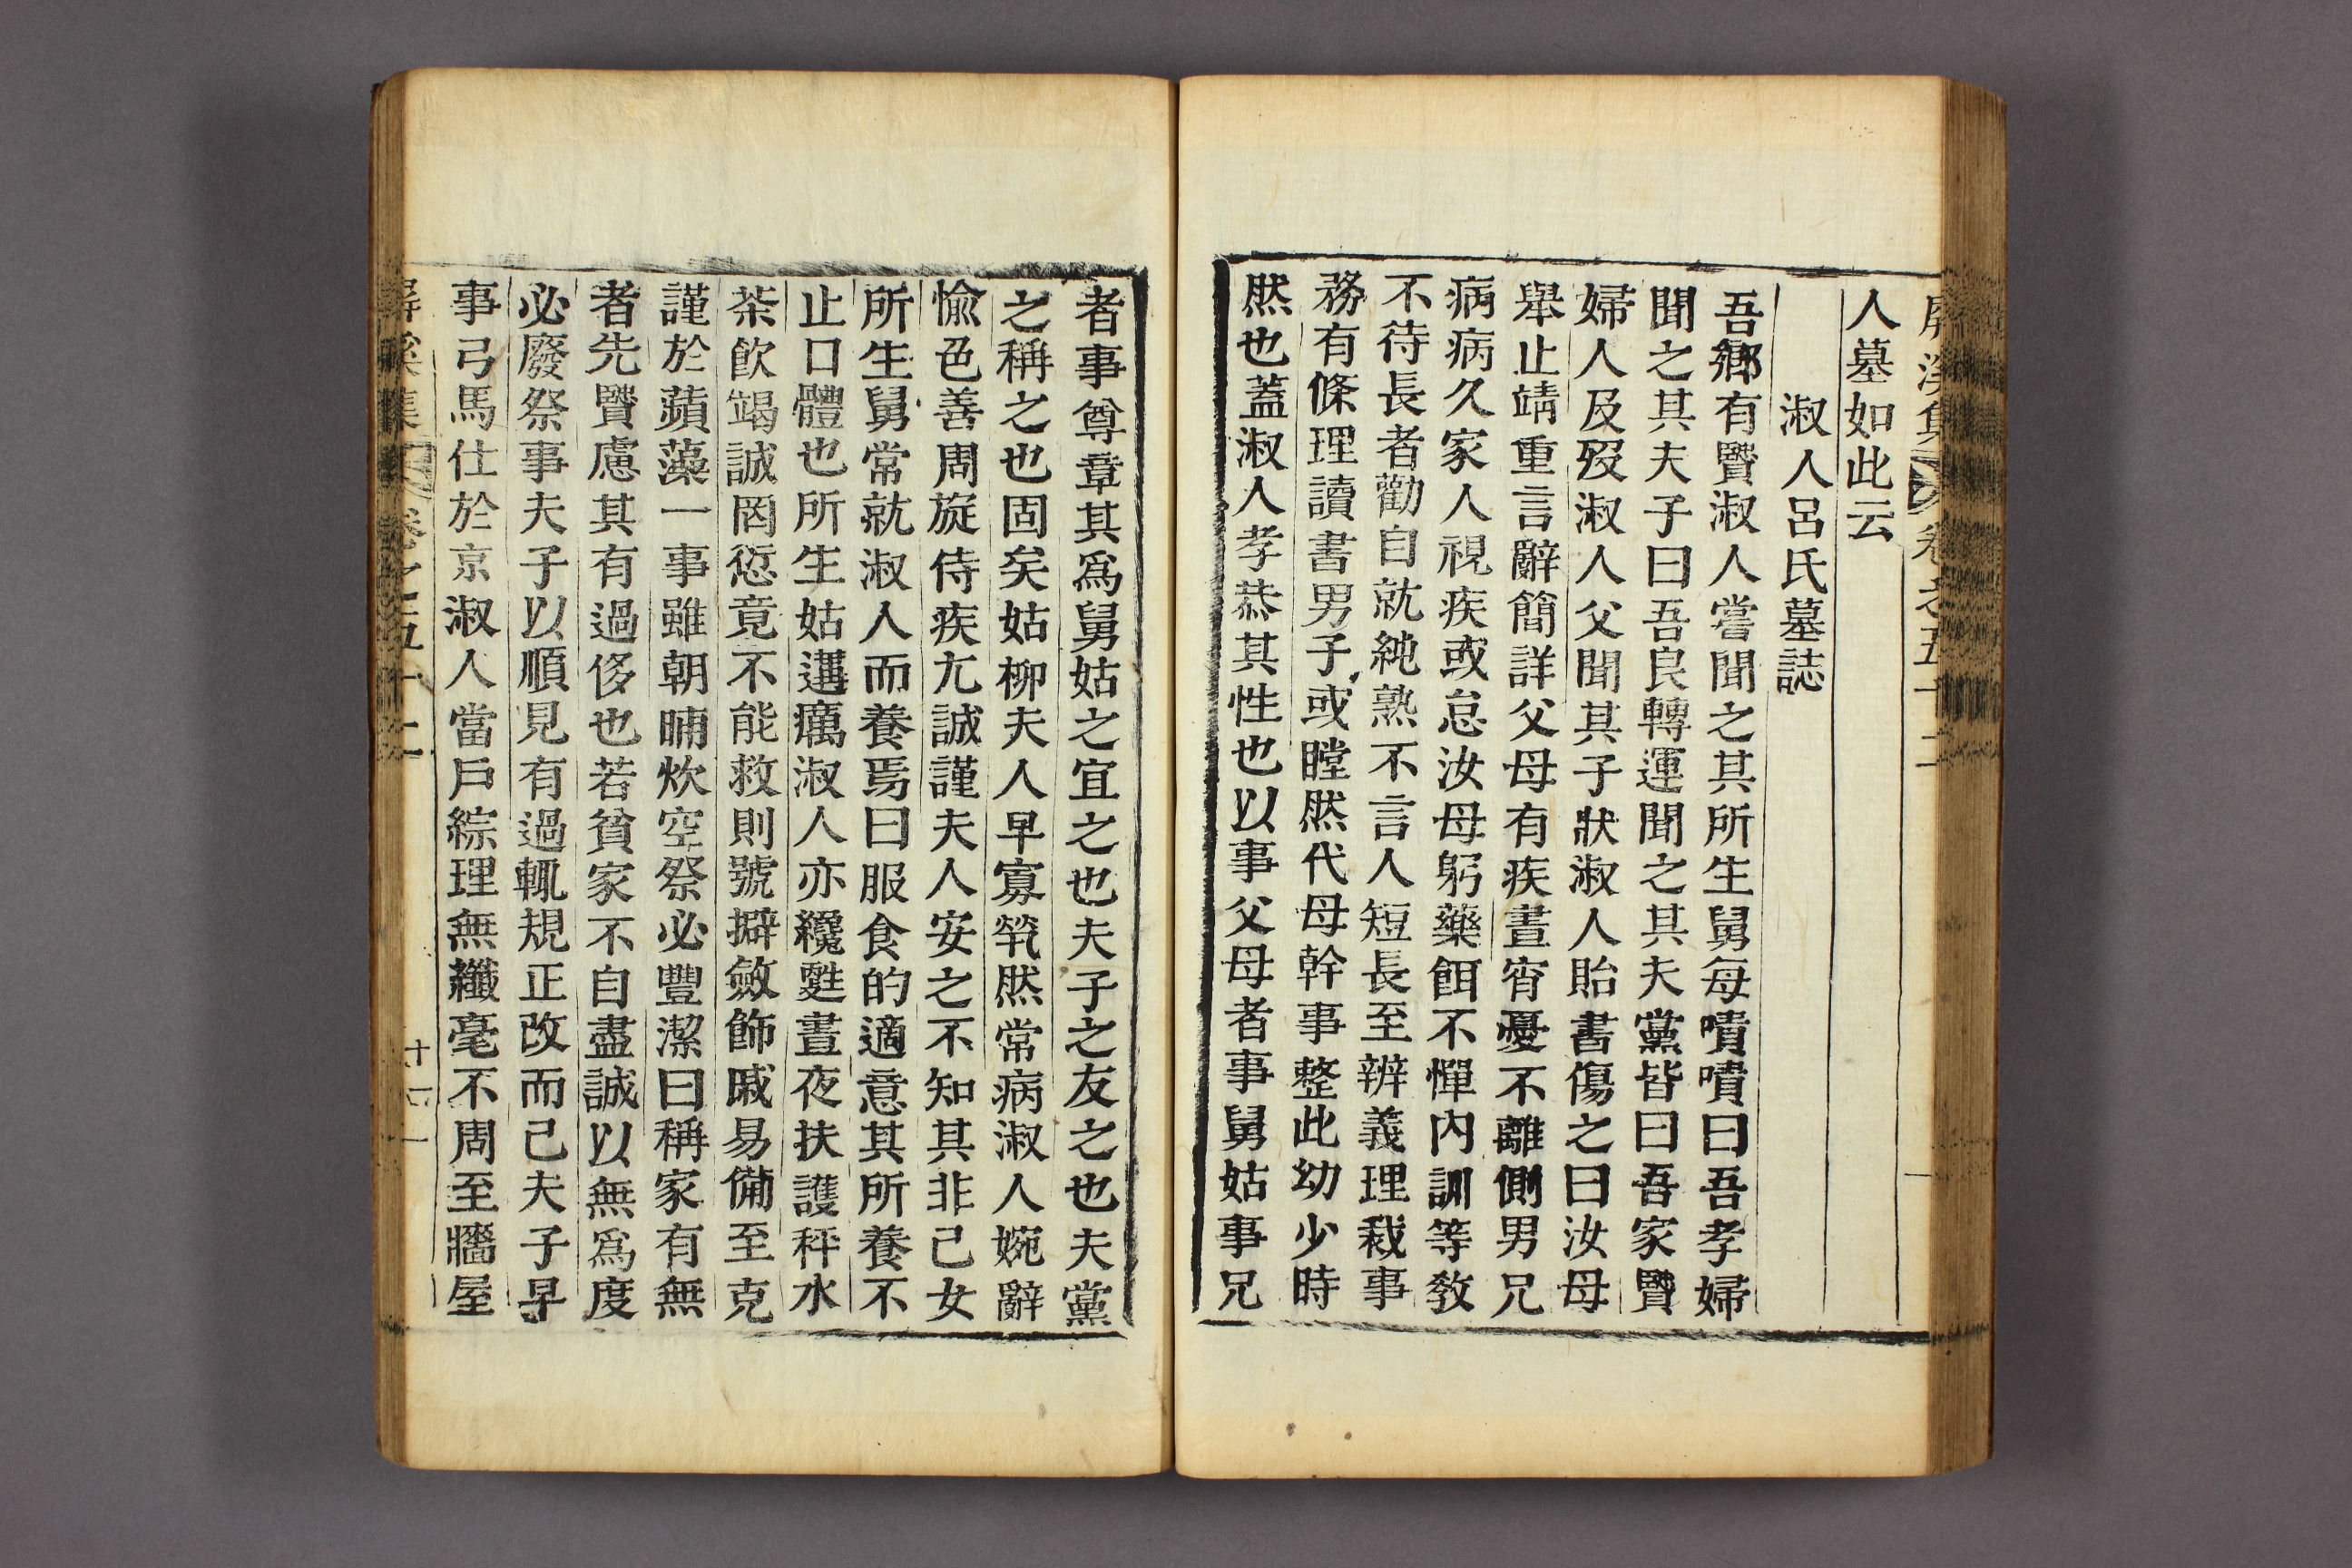 屛溪集
卷之五十二
人墓如此云
淑人呂氏墓誌
吾鄕有賢淑人嘗聞之其所生舅每嘖嘖曰吾孝婦
聞之其夫子曰吾良轉運聞之其夫黨皆曰吾家賢
婦人及歿淑人父聞其子狀淑人貽書傷之曰汝母
擧止靖重言辭簡詳父母有疾晝宵憂不離側男兄
病病久家人視疾或怠汝母躬藥餌不憚內訓等敎
不待長者勸自就純熟不言人短長至辨義理裁事
務有條理讀書男子或瞠然代母幹事整此幼少時
然也蓋淑人孝恭其性也以事父母者事舅姑事兄
者事尊章其爲舅姑之宜之也夫子之友之也夫黨
之稱之也固矣姑柳夫人早寡煢然常病淑人婉辭
愉色善周旋侍疾尤誠謹夫人安之不知其非己女
所生舅常就淑人而養焉曰服食的適意其所養不
止口體也所生姑遘癘淑人亦纔甦晝夜扶護秤水
茶飮竭誠罔愆竟不能救則號擗斂飾戚易備至克
謹於蘋藻一事雖朝晡炊空祭必豐潔曰稱家有無
者先賢慮其有過侈也若貧家不自盡誠以無爲度
必廢祭事夫子以順見有過輒規正改而己夫子早
事弓馬仕於京淑人當戶綜理無纖毫不周至牆屋
屛溪集
卷之五十二
十一